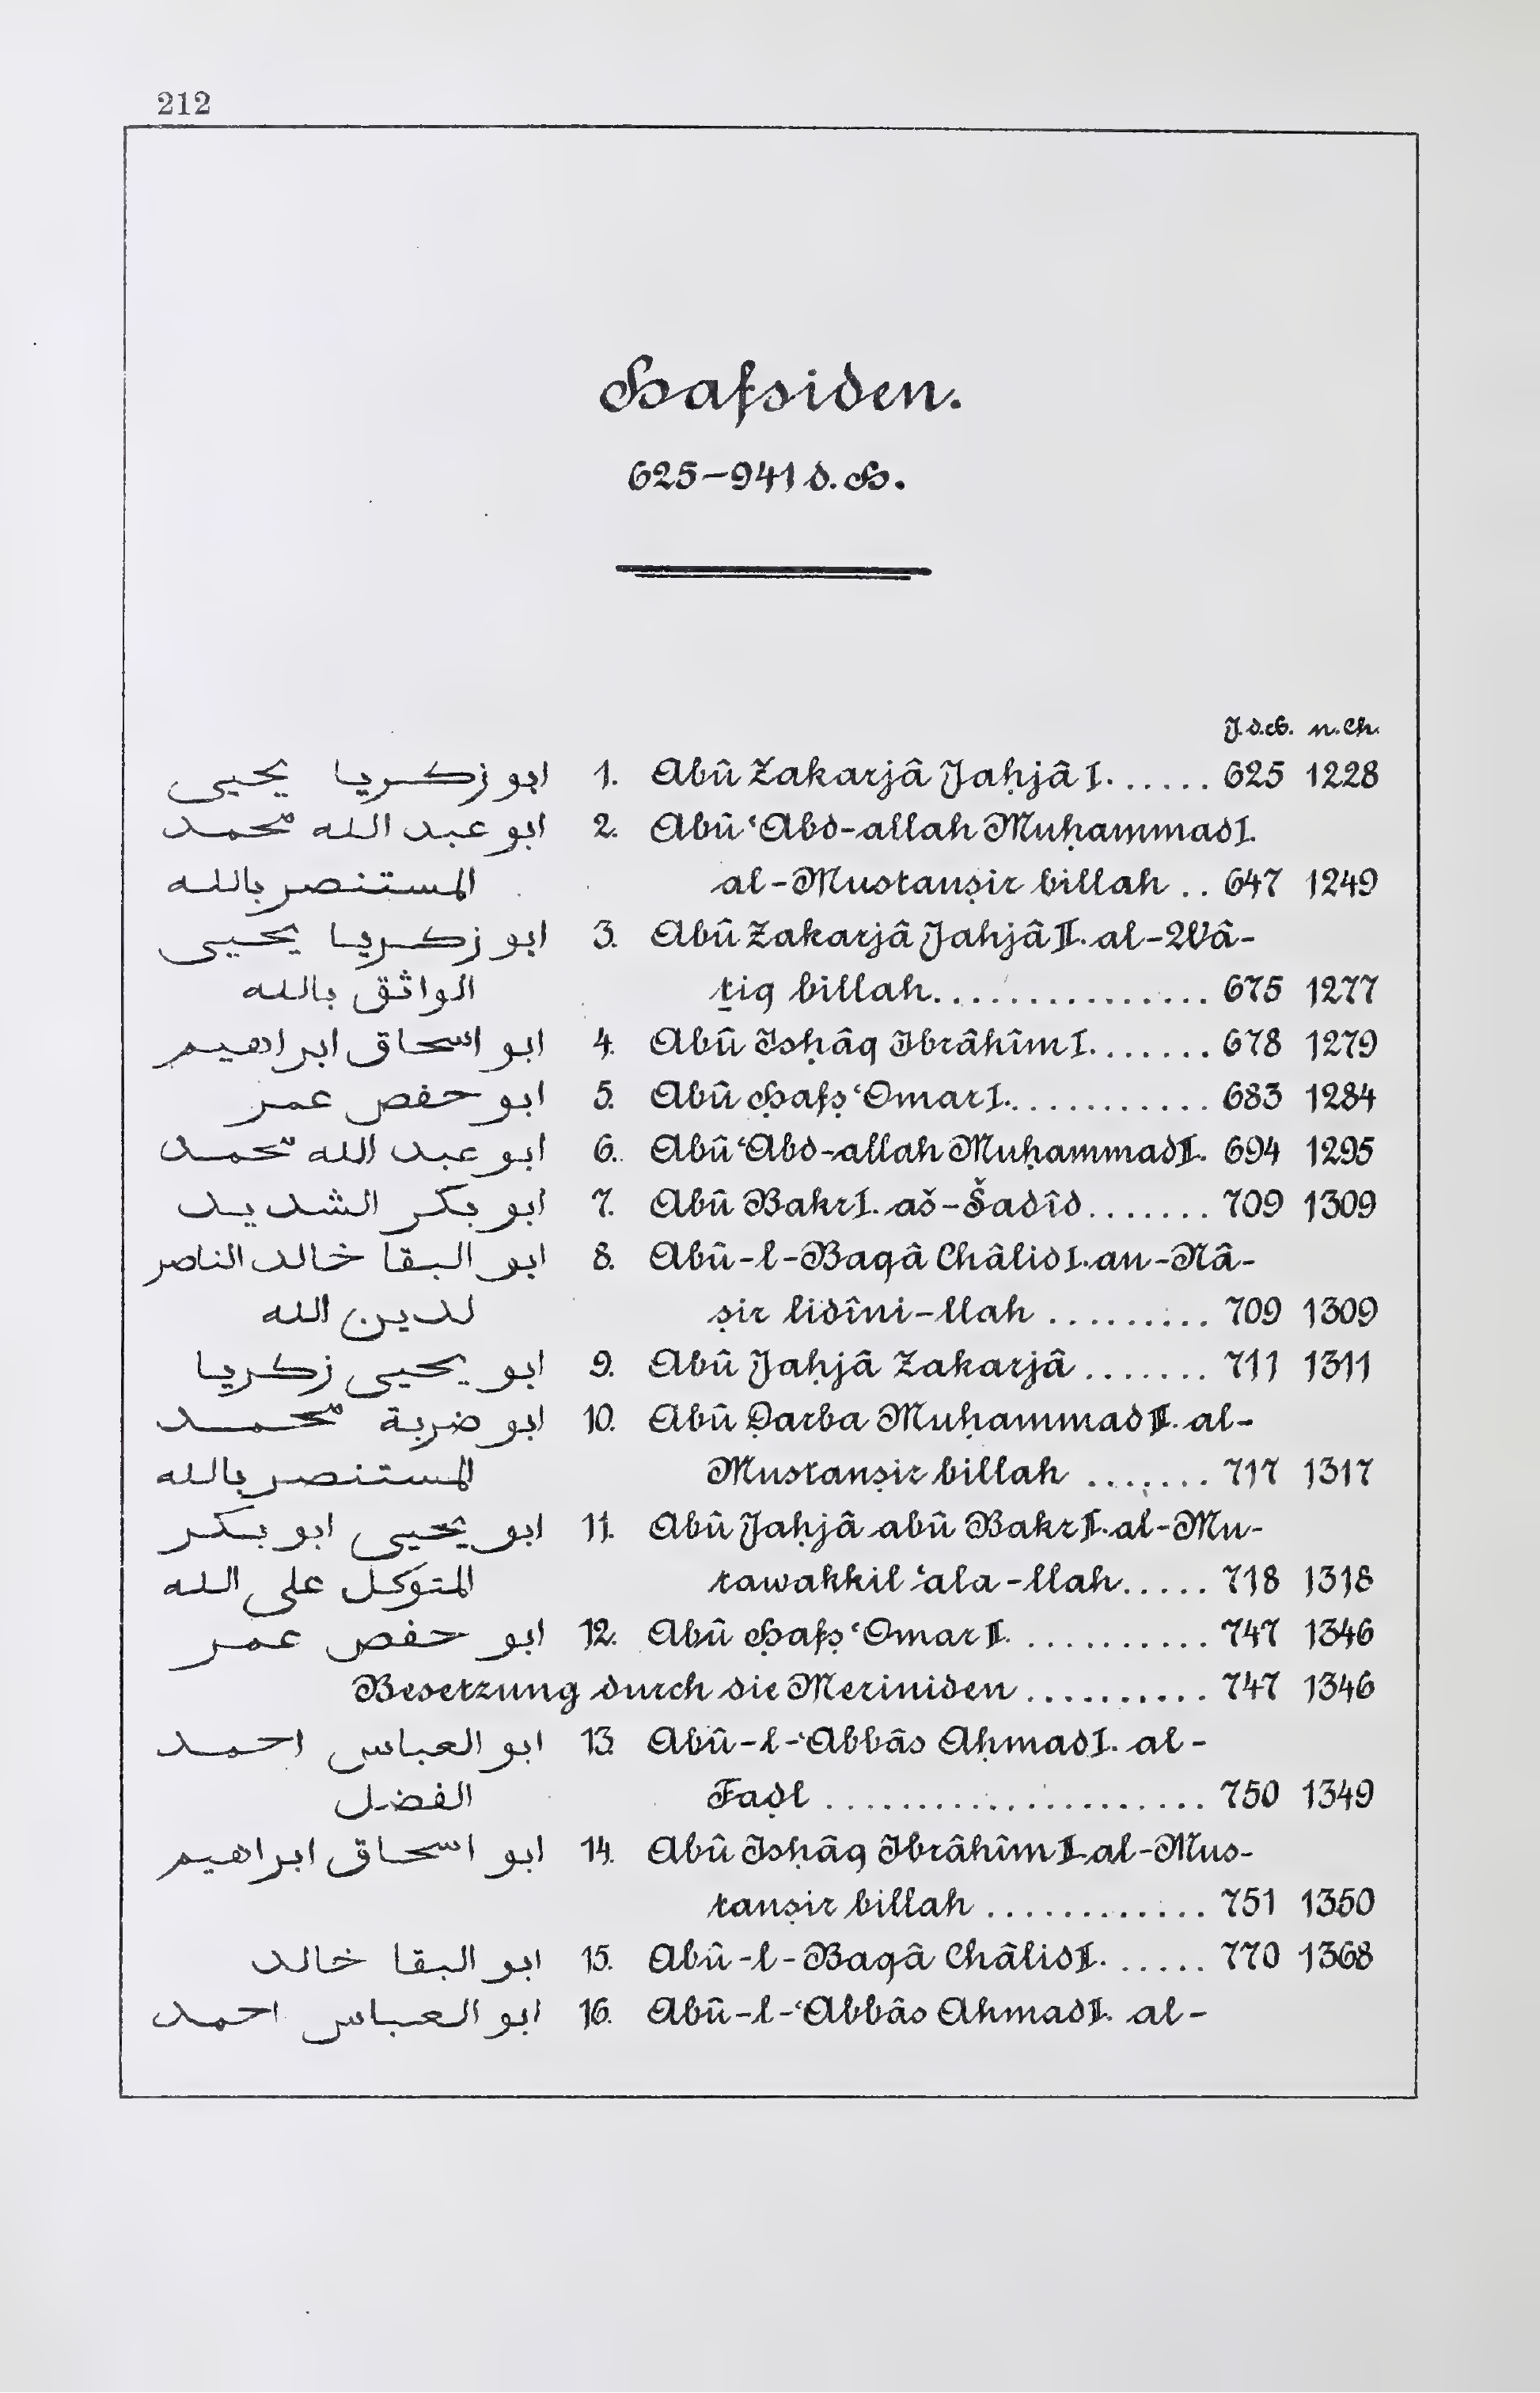 212
Hafsiden.
625-941 d. H.
J.d.H. n.Ch.
ابو زكريا يحيى 1. Abû Zakarjâ Jaḥjâ I. ...... 625 1228
ابو عبد الله محمد 2. Abû ‘Abd-allah Muḥammad I.
المستنصر بالله al-Mustanṣir billah .. 647 1249
ابو زكريا يحيى 3. Abû Zakarjâ Jahjâ II. al-Wâ-
الواثق بالله ṯiq billah............... 675 1277
ابو اسحاق ابراهيم 4. Abû Isḥâq Ibrâhîm I. ...... 678 1279
ابو حفص عمر 5. Abû Ḥafṣ ‘Omar I. .......... 683 1284
ابو عبد الله محمد 6. Abû ‘Abd-allah Muḥammad II. 694 1295
ابو بكر الشديد 7. Abû Bakr I. aš-Šadîd....... 709 1309
ابو البقا خالد الناصر 8. Abû-l-Baqâ Châlid I. an-Nâ-
لدين الله ṣir lidîni-llah ......... 709 1309
ابو يحيى زكريا 9. Abû Jaḥjâ Zakarjâ ....... 711 1311
ابو ضربة محمد 10. Abû Ḍarba Muḥammad III. al-
المستنصر بالله Mustanṣir billah ....... 717 1317
ابو يحيى ابو بكر 11. Abû Jaḥjâ abû Bakr II. al-Mu-
المتوكل على الله tawakkil ‘ala-llah..... 718 1318
ابو حفص عمر 12. Abû Ḥafṣ ‘Omar II. .......... 747 1346
Besetzung durch die Meriniden .......... 747 1346
ابو العباس احمد 13. Abû-l-‘Abbâs Aḥmad I. al-
الفضل Faḍl .................... 750 1349
ابو اسحاق ابراهيم 14. Abû Isḥâq Ibrâhîm II. al-Mus-
tanṣir billah ............ 751 1350
ابو البقا خالد 15. Abû-l-Baqâ Châlid II. ...... 770 1368
ابو العباس احمد 16. Abû-l-‘Abbâs Ahmad II. al-